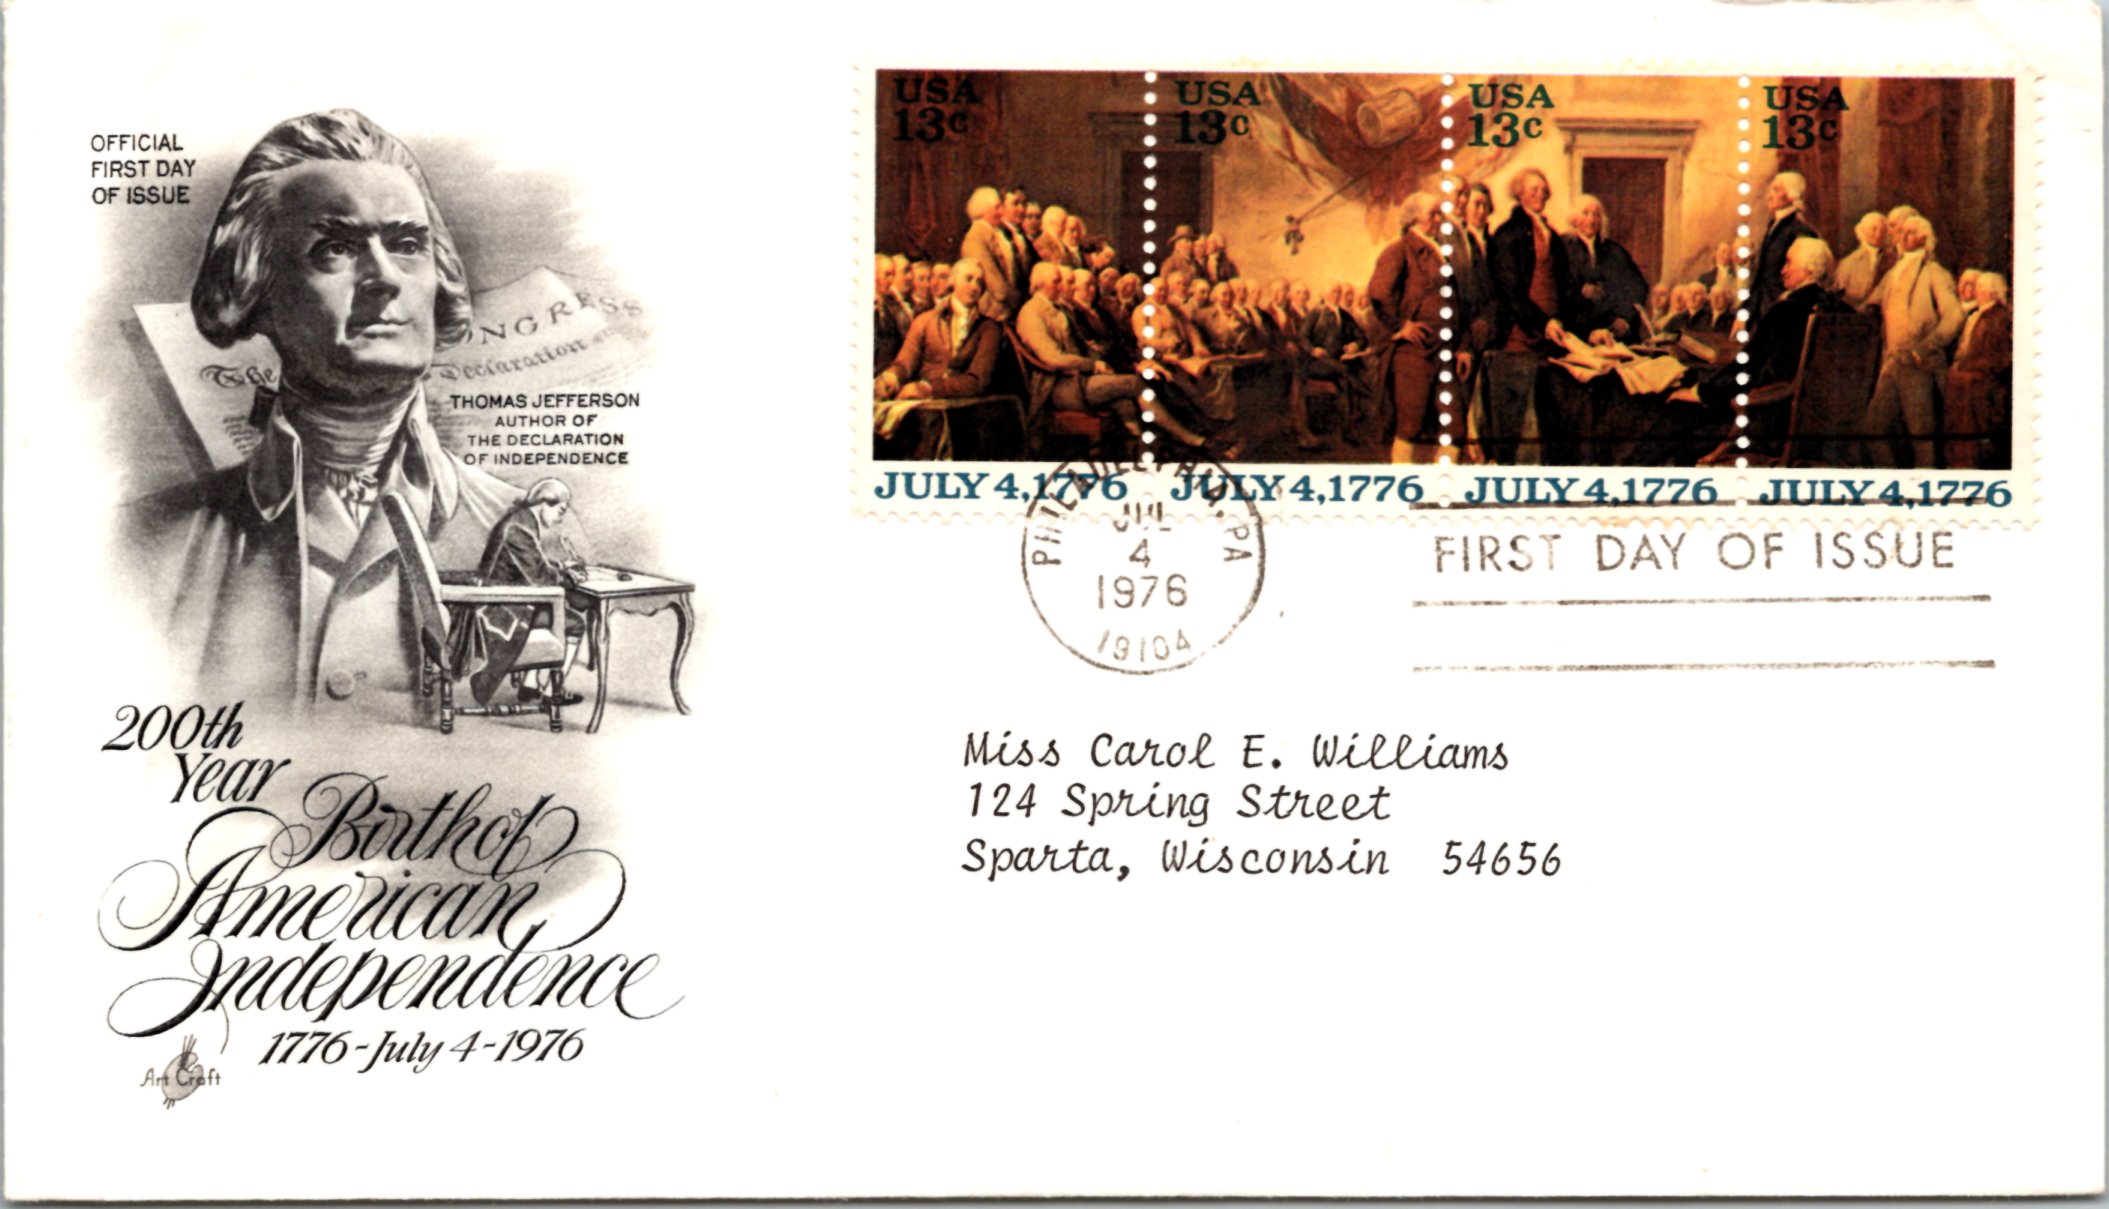 OFFICIAL
FIRST DAY
OF ISSUE
The
NGRESS
Declaration
THOMAS JEFFERSON
AUTHOR OF
THE DECLARATION
OF INDEPENDENCE
200th
Year
Birth of
American
Independence
1776-July 4-1976
Art Craft
USA USA USA USA
13c 13c 13c 13c
JULY 4, 1776 JULY 4, 1776 JULY 4, 1776 JULY 4, 1776
PHILADELPHIA, PA
JUL
4
1976
19104
FIRST DAY OF ISSUE
Miss Carol E. Williams
124 Spring Street
Sparta, Wisconsin 54656